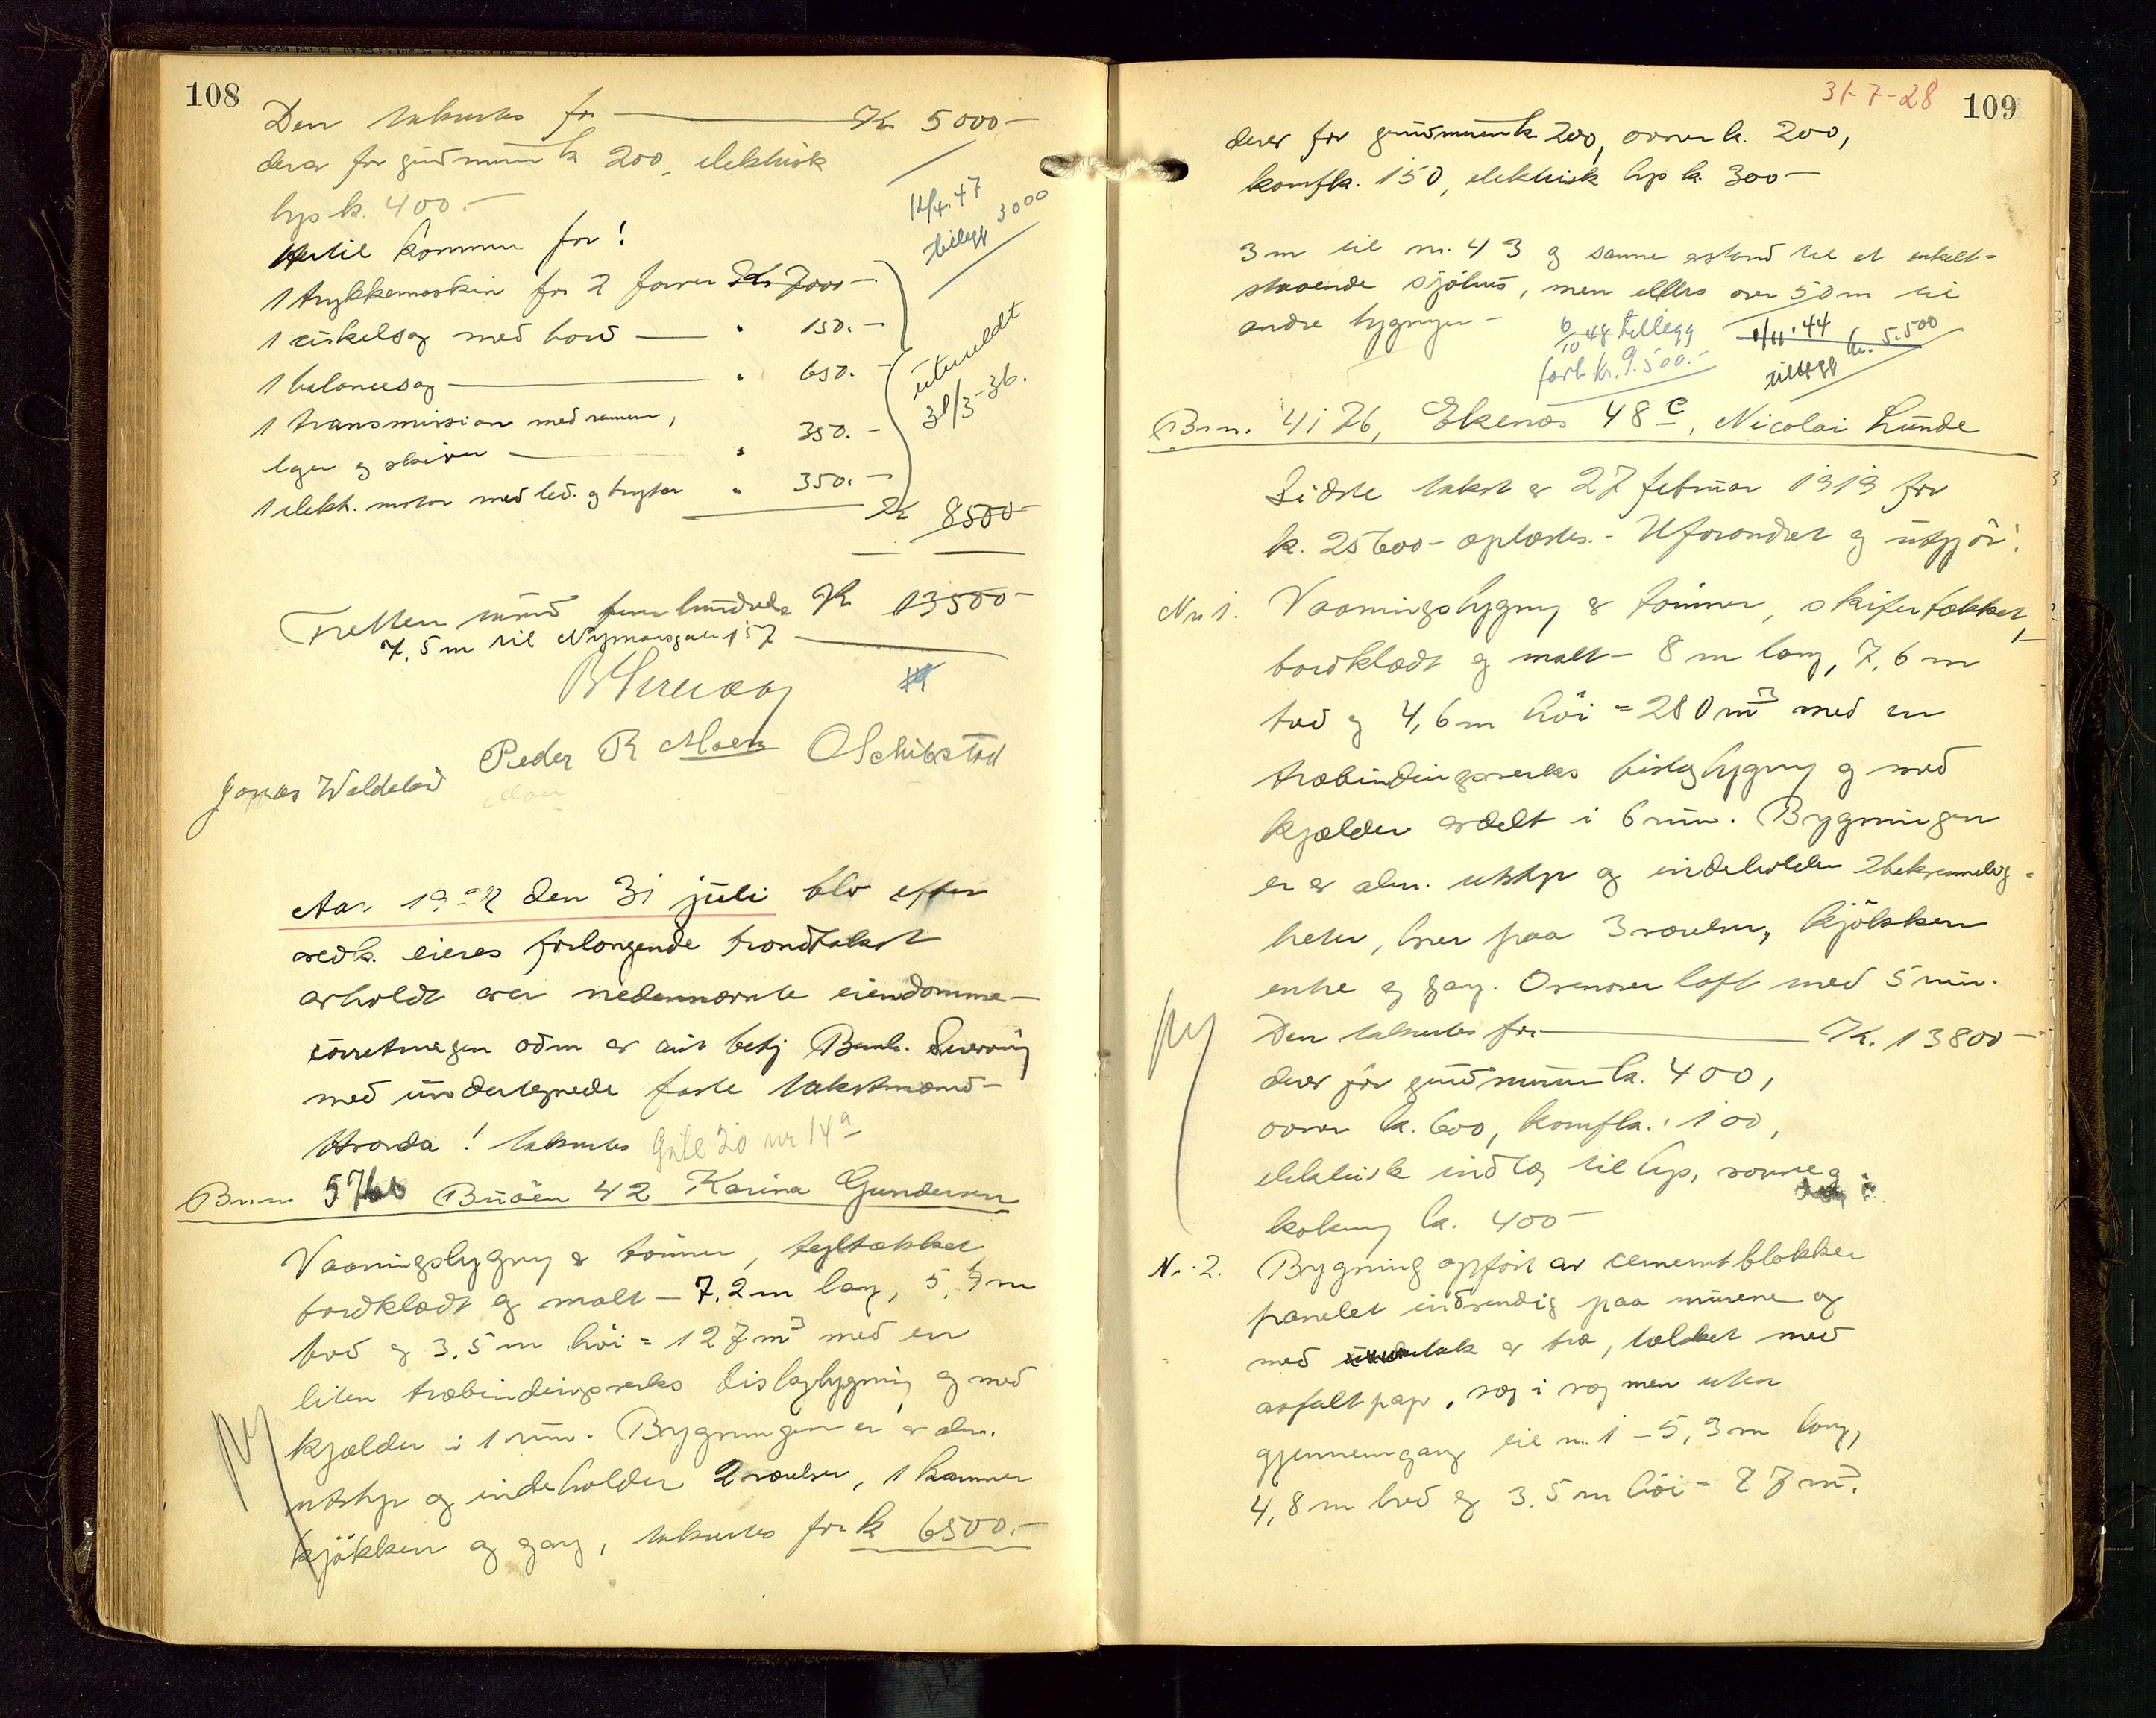 108
Den takseres for — Kr 5000-
derav for grundmur k 200, elektrisk
lys k. 400.-
Hertil kommer for!
1 trykkemaskin for 2 farver Kr 7000-
1 cirkelsag med bord — " 150.-
1 balancesag — " 650.-
1 transmission med remmer,
lager og skiver — " 350.-
1 elektr. motor med led. og bryter " 350.-
Kr 8500-
12/4.47
tillegg 3000
utmeldt
31/3-36.
Tretten tusind fem hundrede Kr 13500-
7,5 m til Nymansgate 157
Peder R Moen O Schibstad
Jonas Waldeland
Aar 1928 den 31 juli blev efter
vedk. eieres forlangende brandtakst
avholdt over nedennævnte eiendomme-
med undertegnede faste takstmænd-
takseres Gate 20 nr 14a
Br.nr 576b Buøen 42 Karina Gundersen
Vaaningsbygning av tømmer, tegltækket
bordklædt og malt - 7.2 m lang, 5,5 m
bred og 3.5 m høi = 127 m3 med en
liten træbindingsverks bislagbygning og med
kjælder i 1 rum. Bygningen er av alm.
utstyr og indeholder 2 værelser, 1 kammer
kjøkken og gang, takseres for k 6500.-
31-7-28
109
derav for grundmur k 200, ovner k. 200,
komfk. 150, elektrisk lys k. 300-
3 m til nr. 43 og samme avstand til et enkelt-
staaende sjøhus, men ellers over 50 m til
andre bygninger-
6/10 48 tillegg
forh. kr. 9.500.-
1/11.44
tillegg kr. 5.500
Br.nr. 4176, Ekenæs 48c, Nicolai Lunde
Sidste takst av 27 februar 1919 for
k. 25600- oplæstes.- Uforandret og utgjør!
Nr 1. Vaaningsbygning av tømmer, skifertækket,
bordklædt og malt - 8 m lang, 7,6 m
bred og 4,6 m høi = 280 m3 med en
træbindingsverks bislagbygning og med
kjælder avdelt i 6 rum. Bygningen
er av alm. utstyr og indeholder 2 bekvemmelig-
heter, hver paa 3 værelser, kjøkken
entre og gang. Ovenover loft med 5 rum.
Den takseres for — Kr. 13800-
derav for grundmur k. 400,
ovner k. 600, komfk. 100,
elektrisk indlæg til lys, varme og
kokning k. 400-
Nr. 2. Bygning opført av cementblokker
panelet indvendig paa murene og
med tak av træ, tækket med
asfaltpap, væg i væg men uten
gjennemgang til nr. 1 - 5,3 m lang,
4,8 m bred og 3.5 m høi = 87 m3.